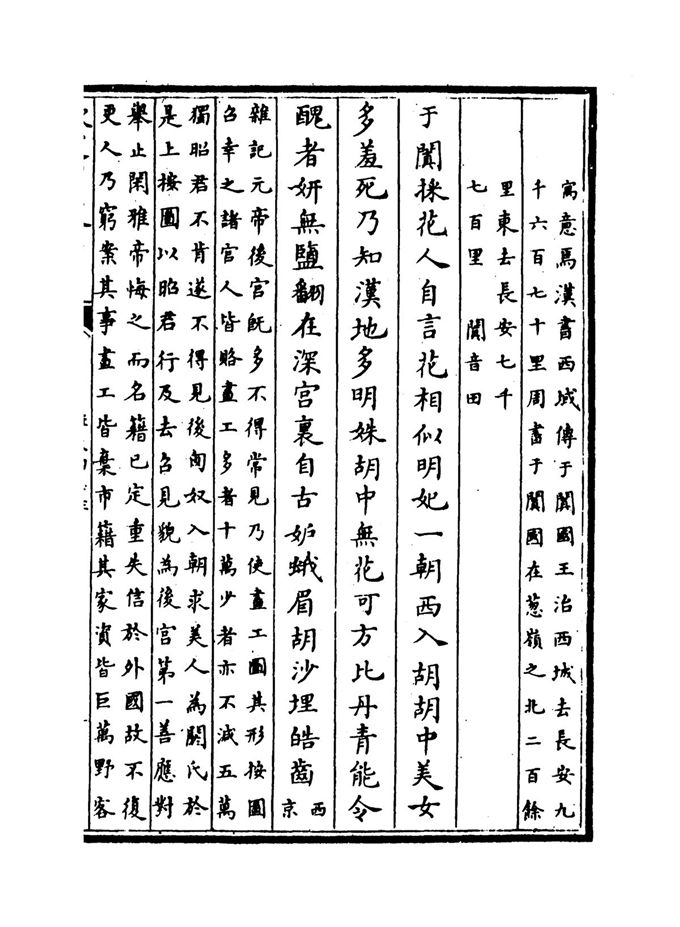 寓意焉漢書西域傳于闐國王治西城去長安九
千六百七十里周書于闐國在葱嶺之北二百餘
里東去長安七千
七百里　闐音田
于闐採花人自言花相似明妃一朝西入胡胡中美女
多羞死乃知漢地多明姝胡中無花可方比丹青能令
醜者妍無鹽翻在深宫裏自古妒蛾眉胡沙埋皓齒
西
京
雜記元帝後宫既多不得常見乃使畫工圖其形按圖
召幸之諸宫人皆賂畫工多者十萬少者亦不減五萬
獨昭君不肯遂不得見後匈奴入朝求美人為閼氏於
是上按圖以昭君行及去召見貌為後宫第一善應對
舉止閑雅帝悔之而名籍已定重失信於外國故不復
更人乃窮案其事畫工皆棄市籍其家資皆巨萬野客